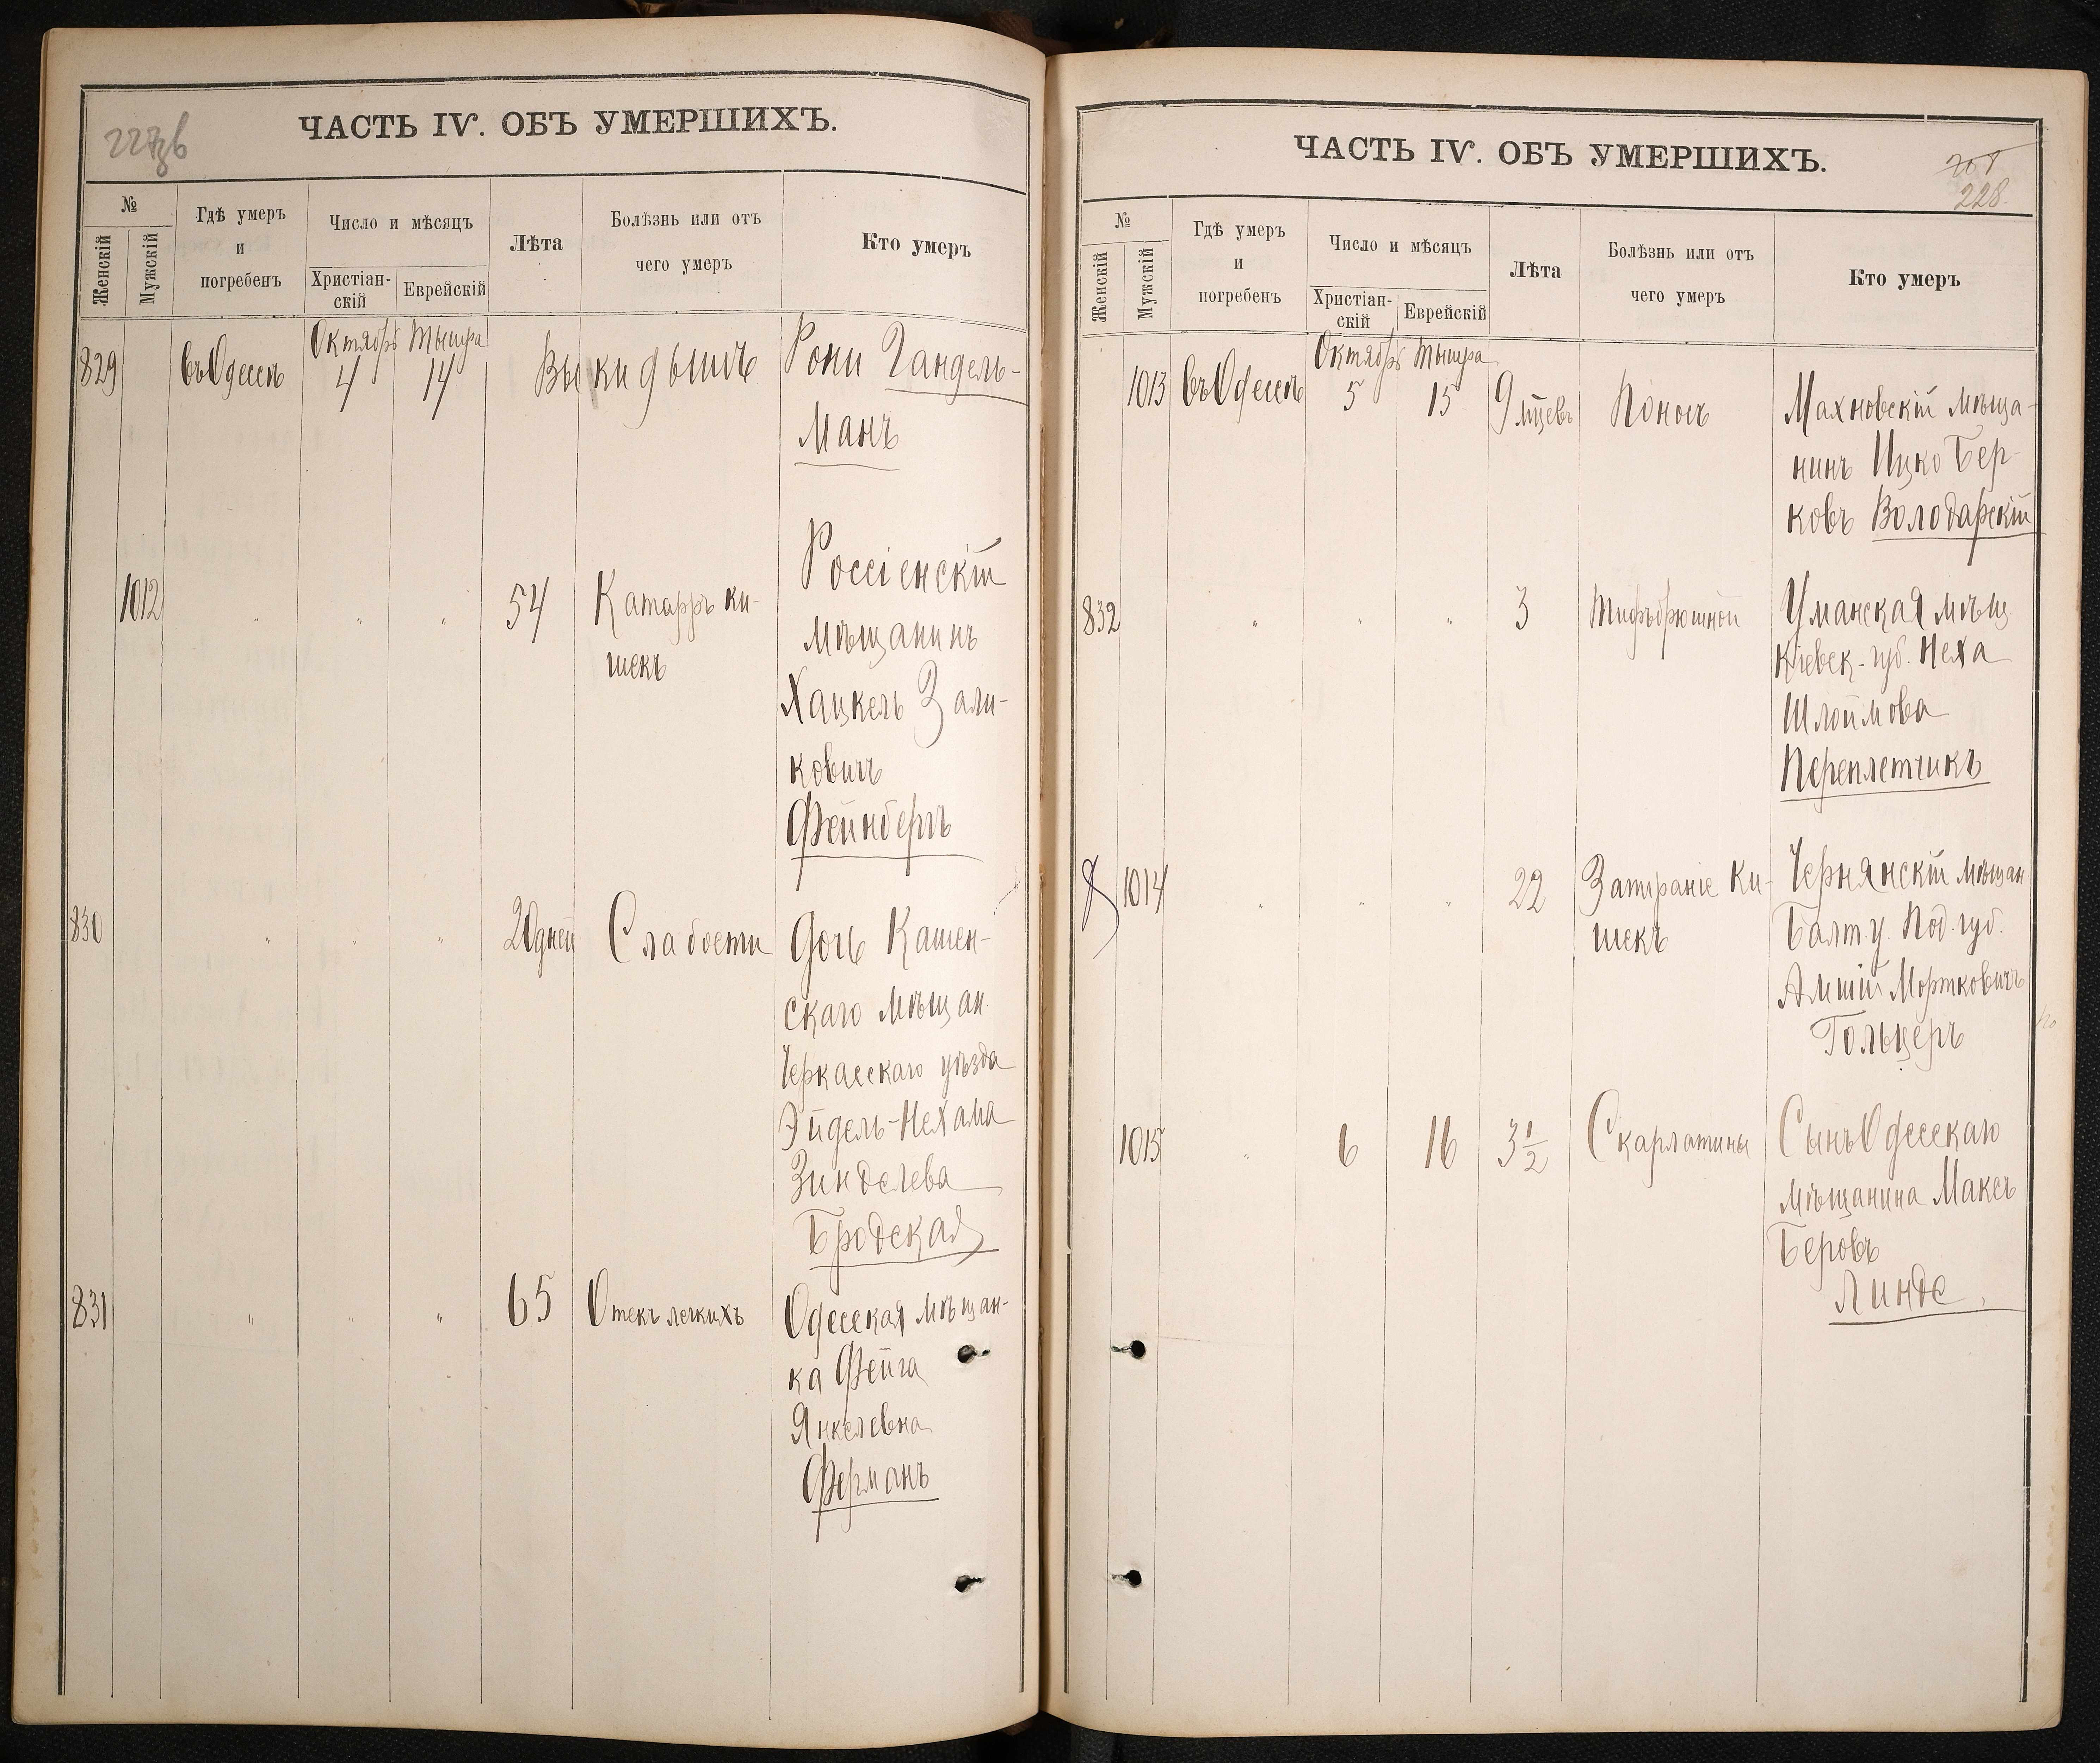 ЧАСТЬ IV. ОБЪ УМЕРШИХЪ.
№
Женскій
Мужскій
Гдѣ умеръ
и
погребенъ
Число и мѣсяцъ
Христіан-
скій
Еврейскій
Лѣта
Болѣзнь или отъ
чего умеръ
Кто умеръ
829 въ Одессѣ Октябрь 4 Тышра 14 Выкидышъ Рони Гандель-
манъ
1012 " " " 54 Катарръ ки-
шекъ
Россіенскій
мѣщанинъ
Хацкель Зали-
ковичъ
Фейнбергъ
830 " " " 20 дней Слабости Дочь Кашен-
скаго мѣщан.
Черкасскаго уѣзда
Эйдель-Нехама
Зинделева
Бродская
831 " " " 65 Отекъ легкихъ Одесская мѣщан-
ка Фейга
Янкелевна
Ферманъ
ЧАСТЬ IV. ОБЪ УМЕРШИХЪ.
228
№
Женскій
Мужскій
Гдѣ умеръ
и
погребенъ
Число и мѣсяцъ
Христіан-
скій
Еврейскій
Лѣта
Болѣзнь или отъ
чего умеръ
Кто умеръ
1013 въ Одессѣ Октябрь 5 Тышра 15 9 мцевъ Поносъ Махновскій мѣща-
нинъ Ицко Бер-
ковъ Володарскій
832 " " " 3 Тифъ брюшной Уманская мѣщ.
Кіевск. губ. Неха
Шлоймова
Переплетчикъ
1014 " " " 22 Запираніе ки-
шекъ
Чернянскій мѣщан.
Балт. у. Под. губ.
Мортковичъ
Гольцеръ
1015 " 6 16 3 1/2 Скарлатины Сынъ Одесскаго
мѣщанина Максъ
Беровъ
Линде